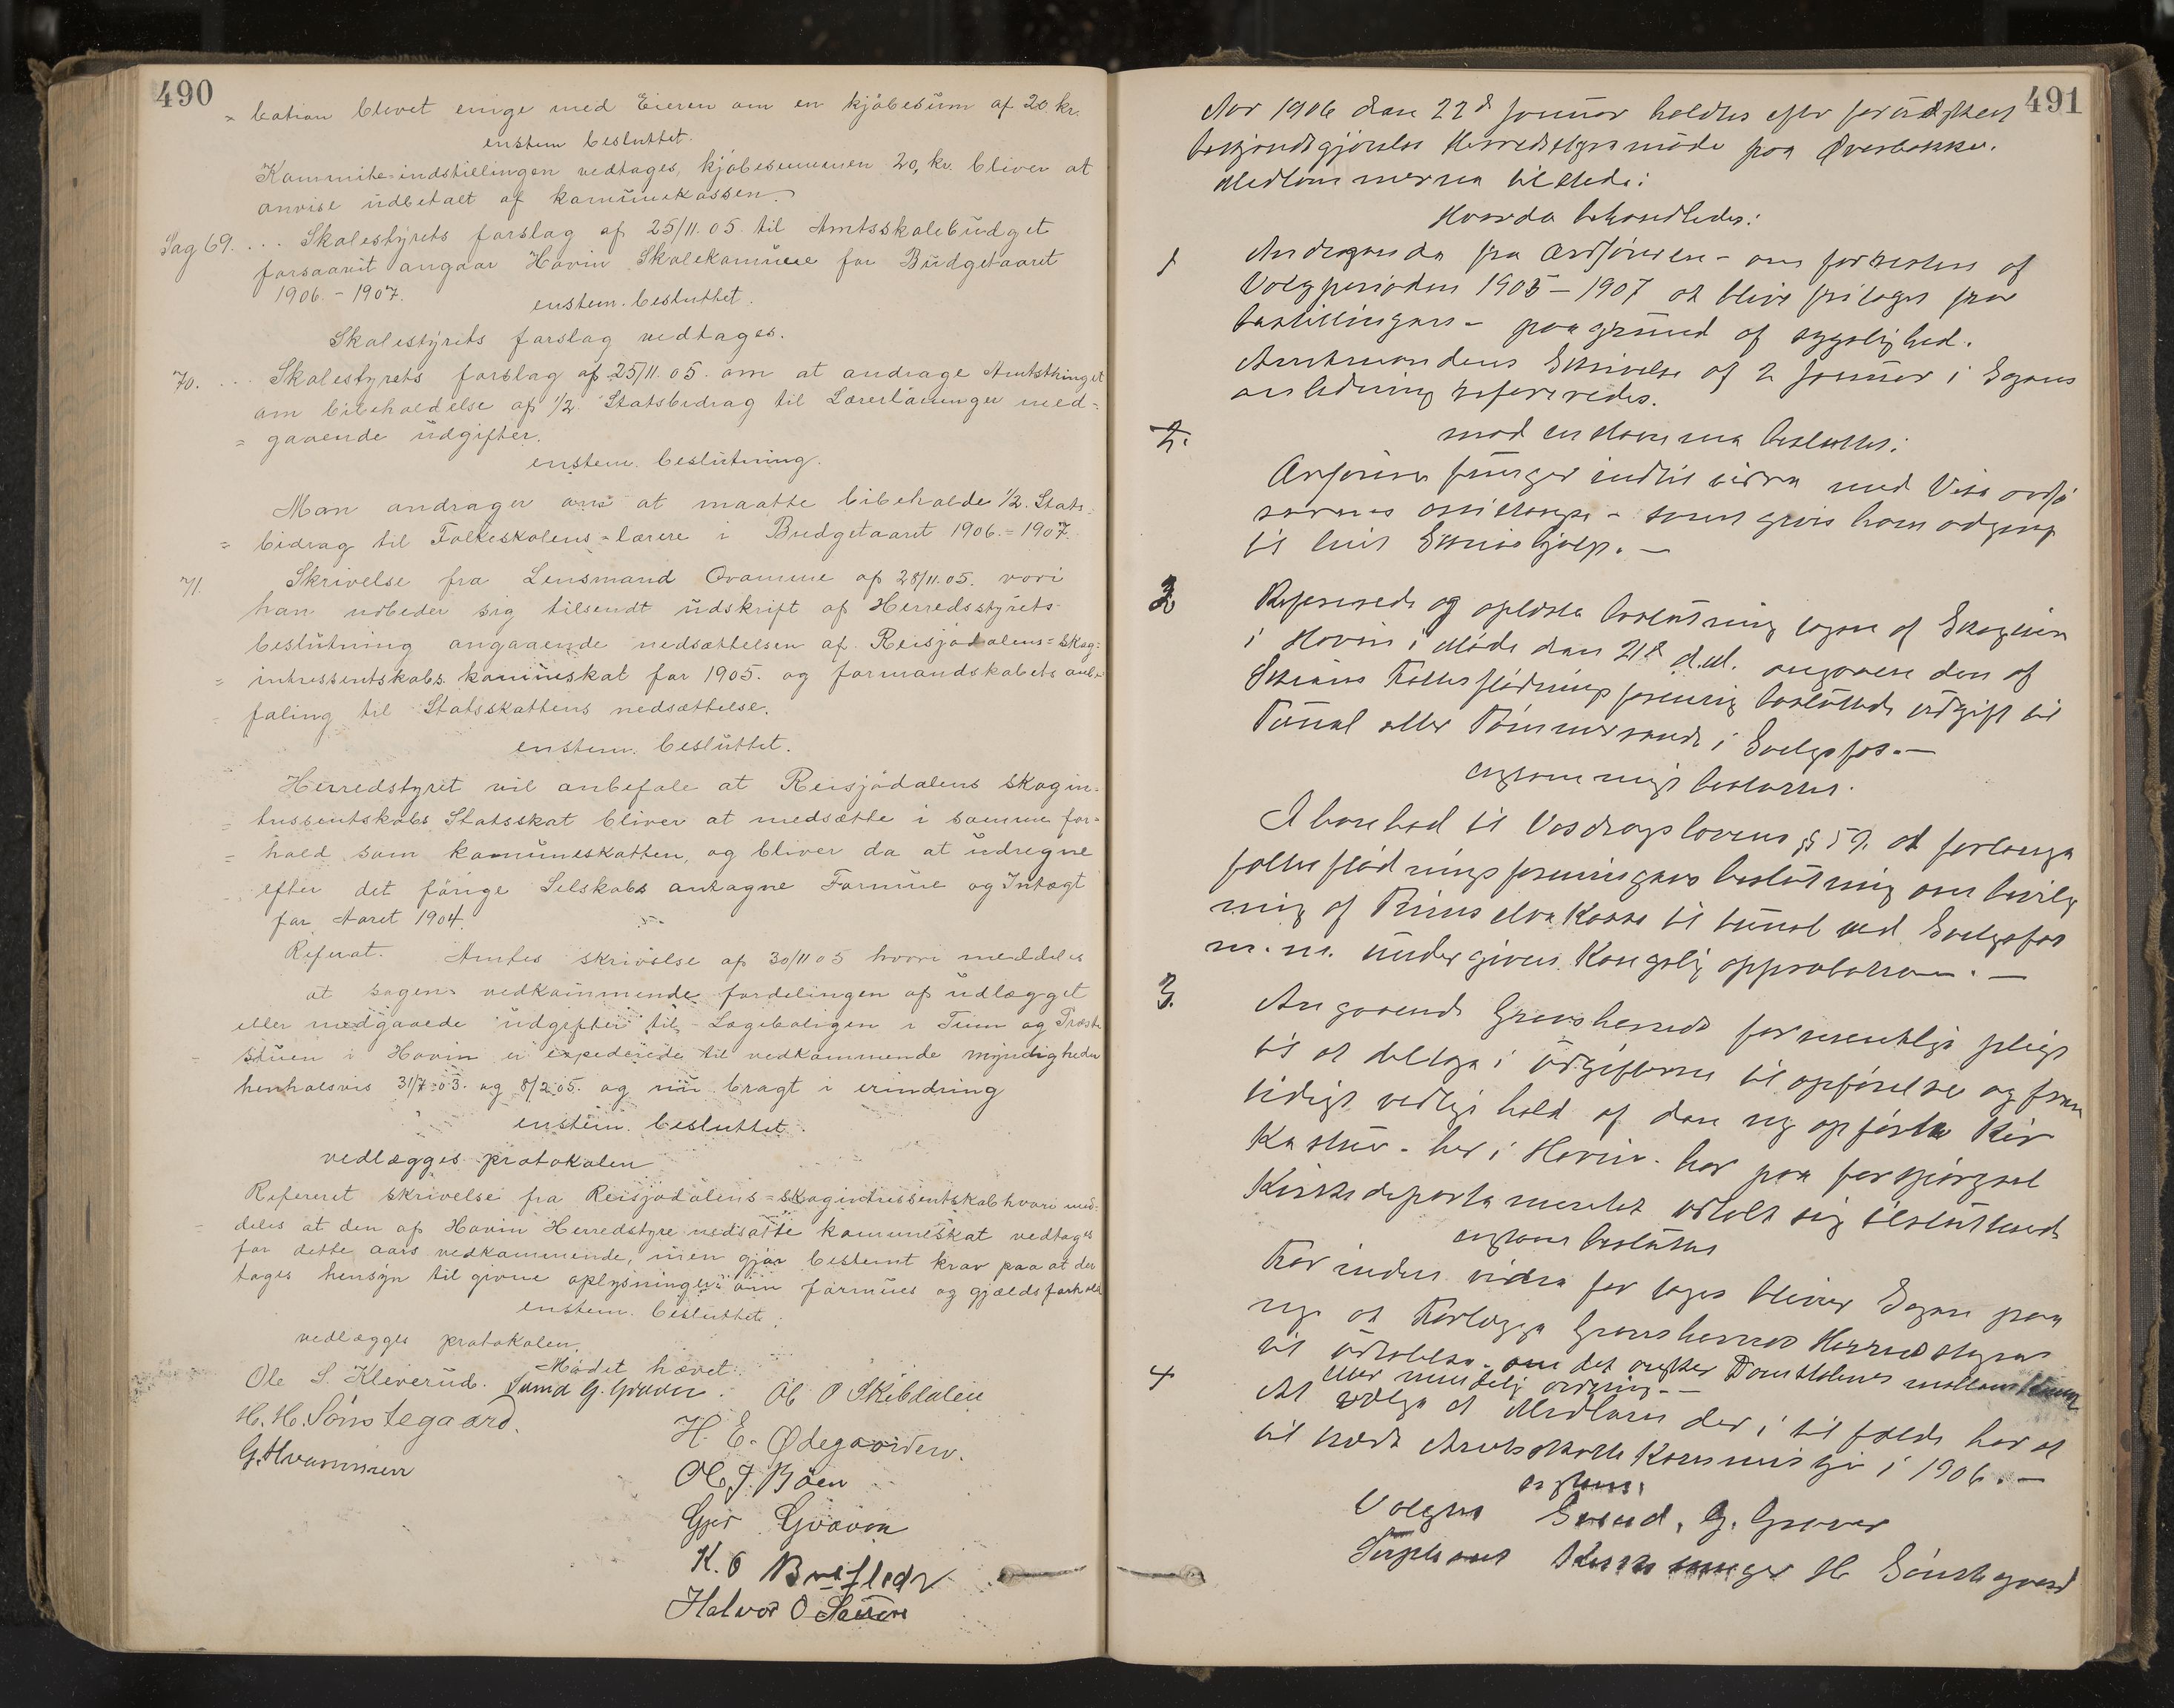 490
= bation blevet enige med Eieren om en kjöbesum af 20 kr.
enstem besluttet.
Kommite-indstillingen vedtages, kjöbesummen 20, kr. bliver at
anvise udbetalt af kommunekassen.
Sag 69. ... Skolestyrets forslag af 25/11.05. til Amtsskolebudget
forsaavit angaar Hovin Skolekommune for Budgetaaret
1906. - 1907.
enstem. besluttet.
Skolestyrets forslag vedtages.
70. ... Skolestyrets forslag af 25/11.05. om at andrage Amtsthinget
om bibeholdelse af 1/2. Statsbidrag til Lærerlönninger med=
= gaaende udgifter.
enstem. beslutning.
Man andrager om at maatte bibeholde 1/2. Stats=
= bidrag til Folkeskolens=lærere i Budgetaaret 1906.=1907.
71. Skrivelse fra Lensmand Qvamme af 28/11.05. vori
han udbeder sig tilsendt udskrift af Herredsstyrets
beslutning angaaende nedsættelsen af Reisjödalens=skog=
= intressentskabs komuneskat for 1905. og formandskabets anbe=
faling til Statsskattens nedsættelse.
enstem. besluttet.
Herredstyret vil anbefale at Reisjödalens skogin=
= tressentskabs Statsskat bliver at nedsætte i samme for=
= hold som komuneskatten, og bliver da at udregne
efter det förige Selskabs antagne Formue og Intægt
for Aaret 1904.
Referat. Amtes skrivelse af 30/11 05 hvori meddeles
at sagen vedkommende fordelingen af udlægget
eller medgaaede udgifter til Lægeboligen i Tinn og Præste
stuen i Hovin er expederede til vedkommende myndigheder
henholsvis 31/7-03. og 8/2 05. og nu bragt i erindring
enstem. besluttet.
vedlægges protokolen
Referert skrivelse fra Reisjödalens=skogintressentskab hvori med=
deles at den af Hovin Herredstyre nedsatte kommuneskat vedtages
for dette aars vedkommende, men gjör bestemt krav paa at der
tages hensyn til givne oplysninger om formues og gjældsforhold
enstem. besluttet.
vedlægges protokolen.
Mödet hævet.
Ole S. Kleverud. Svend G. Graver. Ole O Skibdalen
H. H. Sönstegaard. H. E. Ødegaarden.
G. Hvammen Ole J. Böen
Gjer Graver
K. O
Halvor O
491
Aar 1906 den 22d Januar holdtes efter forudskeet
bekjendtgjörelse Herredstyremöde paa Øverbekken.
Medlemmerne tilstede:
Hvorda behandledes:
1 Andragende fra Ordföreren - om for resten af
Valgperioden 1905-1907 at blive fritaget for
bestillingen - paa grund af sygelighed.
Amtmandens Skrivelse af 2 Januar i Sagens
anledning refereredes.
2. mod en stemme besluttes:
Ordförer funger indtil videre med Vise ordfö
rerens assistanse - samt gives ham adgang
til leiet Skrivehjælp. -
2 Refererede og oplæste beslutning tagen af Skogeiere
i Hovin i Möde den 21de d.M. angaaende den af
Skiens Fællesflödningsforening besluttede udgift til
Tunel eller Tömmerrende i Svelgfos. -
enstemmigt besluttes.
I henhold til Vasdragslovens § 59. at forlange
fællesflödningsforeningens beslutning om bevilg
ning af Tinnselva Kasse til tunel ved Svelgfos
m.m. undergiven Kongelig approbation. -
3. Angaaende Gransherreds formentlige pligt
til at deltage i udgifterne til opförelse og frem
tidigt vedligehold af den ny opförte Kir
kestue - her i Hovin. har paa forspörgsel
Kirkedepartementet udtalt sig tilsluttende
enstem besluttes
Før inden videre for tages bliver Sagen paa
ny at forlægge Gransherred Herredstyre
til udtalelse. om det ønsker Domstolenes mellemkomst
eller mindelig ordning. -
4 At vælge et Medlem der i tilfælde har at
til træde Amtsskattekommisjon i 1906. -
enstem.
Valgtes Svend. G. Graver
Suppleant H Sönstegaard